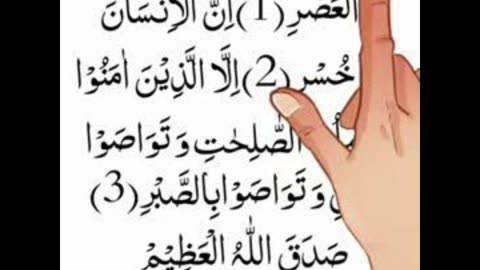 الْعَصْرِ (1) اِنَّ الْاِنْسَانَ
خُسْرٍ (2) اِلَّا الَّذِيْنَ اٰمَنُوْا
الصّٰلِحٰتِ وَ تَوَاصَوْا
وَ تَوَاصَوْا بِالصَّبْرِ (3)
صَدَقَ اللّٰهُ الْعَظِيْمُ